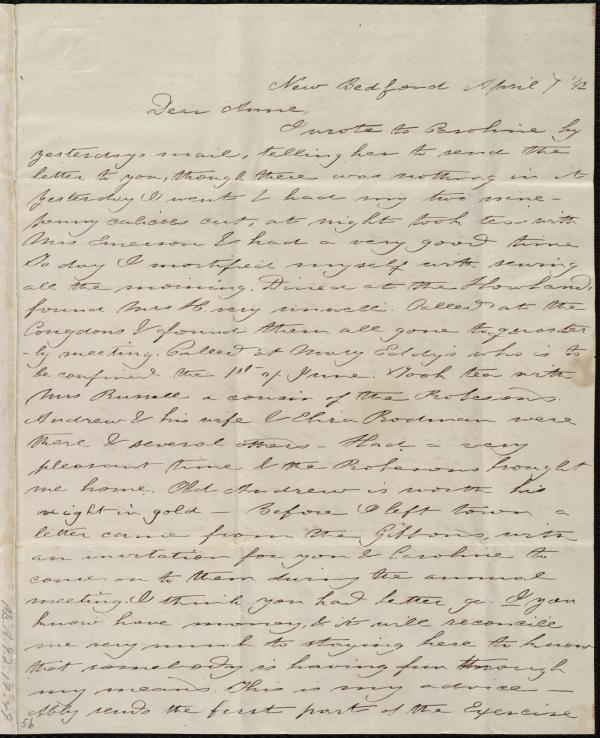 New Bedford April 7 '42
Dear Anne,
I wrote to Caroline by
yesterdays mail, telling her to send the
letter to you, though there was nothing in it
Yesterday I went & had my two nine-
penny calicoes cut, at night took tea with
Mrs Emerson & had a very good time
To day I mortified myself with sewing
all the morning. Dined at the Howlands,
found Mrs H. very unwell. Called at the
Congdons & found them all gone to quarter
-ly meeting. Called at Mary Eddy's who is to
be confined the 1st of June. Took tea with
Mrs Russell a cousin of the Robesons.
Andrew & his wife & Eliza Rodman were
there & several others - Had a very
pleasant time & the Robesons brought
me home. Old Andrew is worth his
weight in gold - Before I left town a
letter came from the Gibbons, with
an invitation for you & Caroline to
come on to them during the annual
meeting. I think you had better go. I you
know have money, & it will reconcile
me very much to staying here to know
that somebody is having fun through
my means. This is my advice -
Abby sends the first part of the Exercise
56